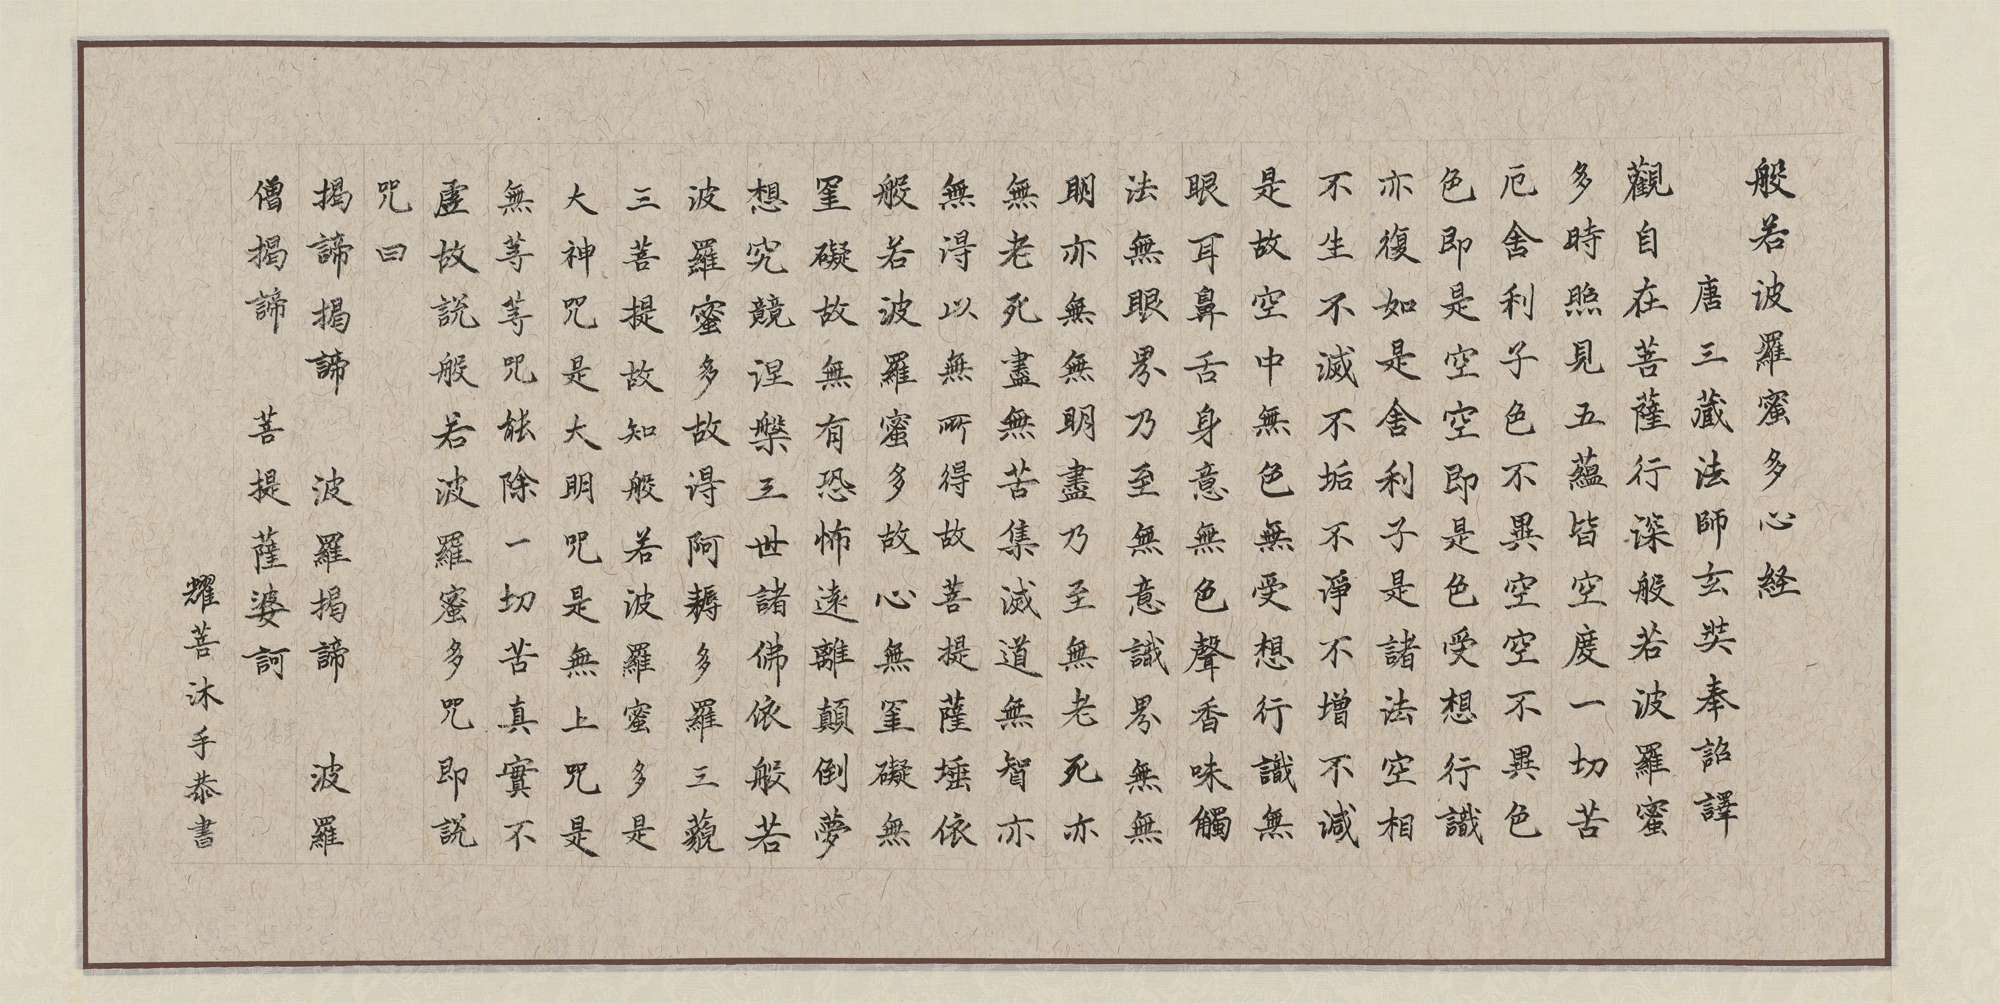 般若波羅蜜多心経
唐三藏法師玄奘奉詔譯
觀自在菩薩行深般若波羅蜜
多時照見五蘊皆空度一切苦
厄舍利子色不異空空不異色
色即是空空即是色受想行識
亦復如是舍利子是諸法空相
不生不滅不垢不淨不增不減
是故空中無色無受想行識無
眼耳鼻舌身意無色聲香味觸
法無眼界乃至無意識界無無
明亦無無明盡乃至無老死亦
無老死盡無苦集滅道無智亦
無得以無所得故菩提薩埵依
般若波羅蜜多故心無罣礙無
罣礙故無有恐怖遠離顛倒夢
想究竟涅槃三世諸佛依般若
波羅蜜多故得阿耨多羅三藐
三菩提故知般若波羅蜜多是
大神咒是大明咒是無上咒是
無等等咒能除一切苦真實不
虛故說般若波羅蜜多咒即說
咒曰
揭諦揭諦 波羅揭諦 波羅
僧揭諦 菩提薩婆訶
耀菩沐手恭書